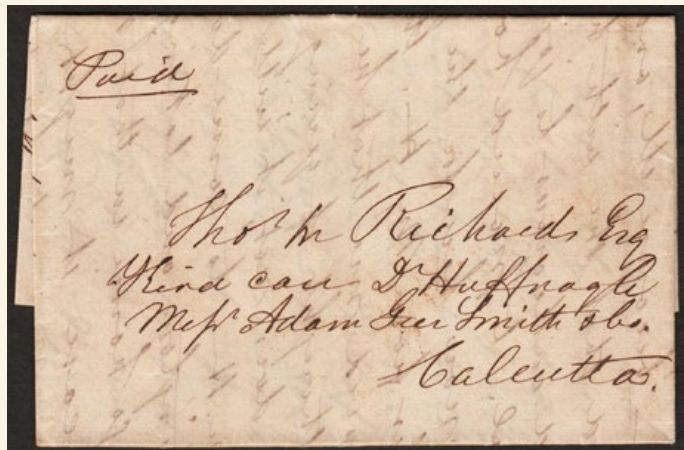 Paid
Thos M Richards Esq
Kind care Dr Huffnagle
Messrs Adam Smith & Co.
Calcutta.